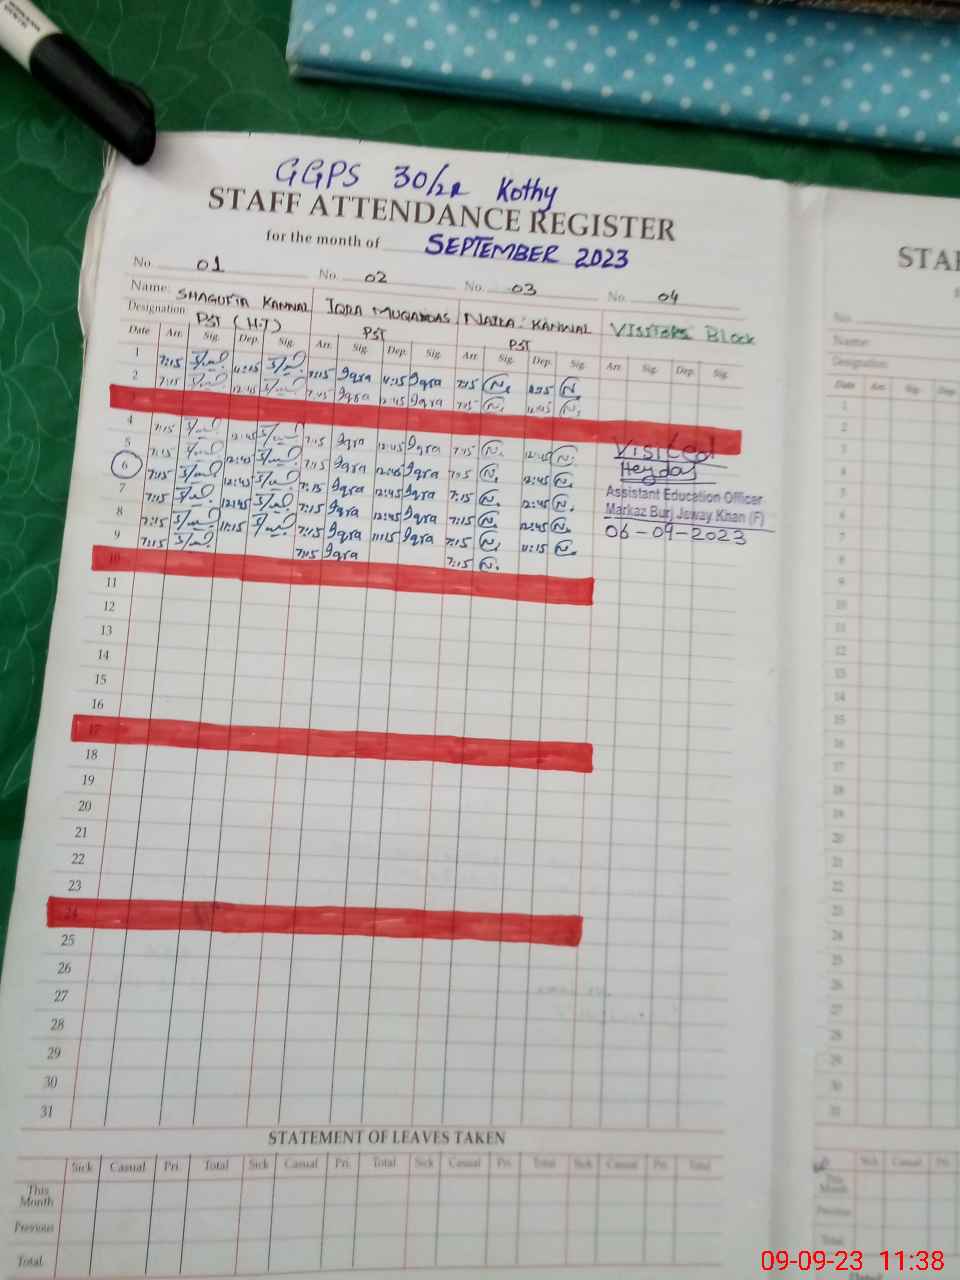 GGPS 30/2R Kothy
STAFF ATTENDANCE REGISTER
for the month of SEPTEMBER 2023
No. 01 No. 02 No. 03 No. 04
Name: SHAGUFTA KANWAL IQRA MUQADDAS NAILA KANWAL VISITERS Block
Designation PST (H.T) PST PST
Date Arr. Sig. Dep. Sig. Arr. Sig. Dep. Sig. Arr. Sig. Dep. Sig. Arr. Sig. Dep. Sig.
1 7:15 11:15 7:15 Iqra 11:15 Iqra 7:15 N. 11:15 N.
2 7:15 12:45 7:15 Iqra 12:45 Iqra 7:15 N. 12:45 N.
3
4 7:15 12:45 7:15 Iqra 12:45 Iqra 7:15 N. 12:45 N.
5 7:15 12:45 7:15 Iqra 12:45 Iqra 7:15 N. 12:45 N.
6 7:15 12:45 7:15 Iqra 12:45 Iqra 7:15 N. 12:45 N.
7 7:15 12:45 7:15 Iqra 12:45 Iqra 7:15 N. 12:45 N.
8 7:15 11:15 7:15 Iqra 11:15 Iqra 7:15 N. 11:15 N.
9 7:15 7:15 Iqra 7:15 N.
Visited
Assistant Education Officer
Markaz Burj Jeway Khan (F)
06-09-2023
10
11
12
13
14
15
16
17
18
19
20
21
22
23
24
25
26
27
28
29
30
31
STATEMENT OF LEAVES TAKEN
Sick Casual Pri. Total Sick Casual Pri. Total Sick Casual Pri. Total Sick Casual Pri. Total
This Month
Previous
Total
STA
No.
Name:
Designation
Date Arr. Sig. Dep.
1
2
3
4
5
6
7
8
9
10
11
12
13
14
15
16
17
18
19
20
21
22
23
24
25
26
27
28
29
30
31
Sick Casual Pri.
This Month
Previous
Total
09-09-23 11:38